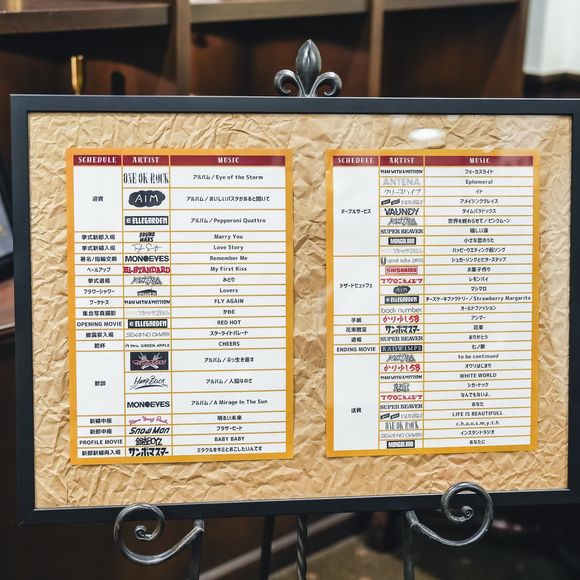 SCHEDULE ARTIST MUSIC
迎賓 ONE OK ROCK アルバム／Eye of the Storm
AIM アルバム／おいしいパスタがあると聞いて
ELLEGARDEN アルバム／Pepperoni Quattro
挙式新郎入場 BRUNO MARS Marry You
挙式新婦入場 Taylor Swift Love Story
署名/指輪交換 MONOEYES Remember Me
ベールアップ Hi-STANDARD My First Kiss
挙式退場 みどり
フラワーシャワー Lovers
ブーケトス MAN WITH A MISSION FLY AGAIN
集合写真撮影 かわE
OPENING MOVIE ELLEGARDEN RED HOT
披露宴入場 SEKAI NO OWARI スターライトパレード
乾杯 Mrs. GREEN APPLE CHEERS
歓談 アルバム／ぶっ生き返す
アルバム／人間なのさ
MONOEYES アルバム／A Mirage In The Sun
新婦中座 明るい未来
新郎中座 Snow Man ブラザービート
PROFILE MOVIE 銀杏BOYZ BABY BABY
新郎新婦再入場 サンボマスター ミラクルをキミとおこしたいんです
SCHEDULE ARTIST MUSIC
テーブルサービス MAN WITH A MISSION フォーカスライト
ANTENA Ephemeral
クリープハイプ イト
アメイジングレイス
VAUNDY タイムパラドックス
世界を終わらせて／ピンクムーン
SUPER BEAVER 嬉しい涙
MONGOL800 小さな恋のうた
デザートビュッフェ ハッピーウエディング前ソング
シュガーソングとビターステップ
SHISHAMO お菓子作り
マカロニえんぴつ レモンパイ
AIM マシマロ
ELLEGARDEN チーズケーキファクトリー／Strawberry Margarita
back number オールドファッション
手紙 かりゆし58 アンマー
花束贈呈 サンボマスター 花束
退場 SUPER BEAVER ありがとう
ENDING MOVIE RADWIMPS 七ノ歌
送賓 to be continued
かりゆし58 オワリはじまり
MAN WITH A MISSION WHITE WORLD
シガードッグ
マカロニえんぴつ なんでもないよ、
SUPER BEAVER あなた
LIFE IS BEAUTIFULL
ONE OK ROCK c.h.a.o.s.m.y.t.h
SEKAI NO OWARI インスタントラジオ
MONGOL800 あなたに